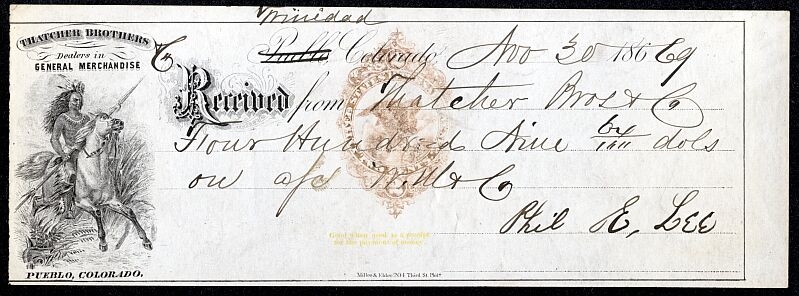 Trinidad
THATCHER BROTHERS
Dealers in
GENERAL MERCHANDISE
Pueblo, Colorado, Nov 30 1869
Received from Thatcher Bros & Co
Four Hundred Nine /100 dols
on a/c & Co
Phil E. Lee
Good when used as a receipt
for the payment of money.
PUEBLO, COLORADO.
Miller & Elder 204 Third St. Phila